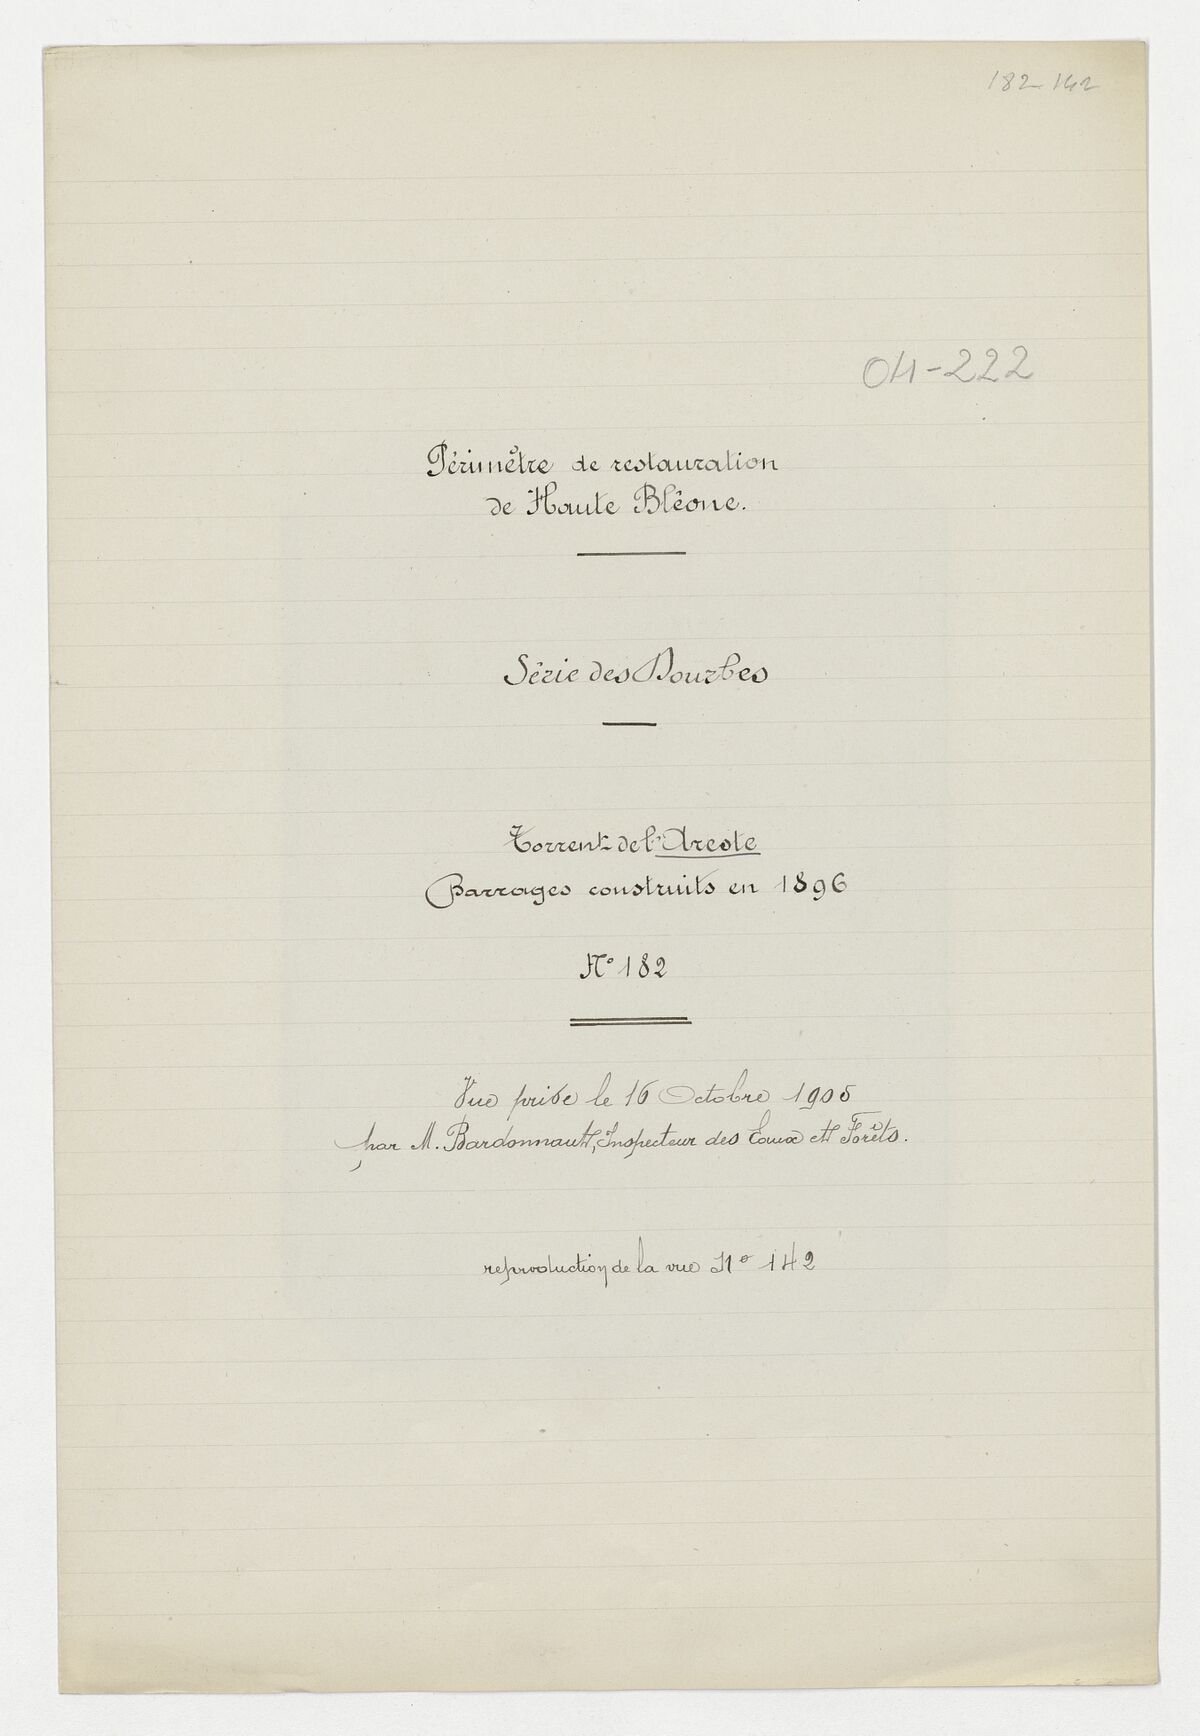 182-142
04-222
Périmètre de restauration
de Haute Bléone.
Série des Dourbes
Torrent de l'Areste
Barrages construits en 1896
N° 182
Vue prise le 16 Octobre 1905
par M. Bardonnaut, Inspecteur des Eaux et Forêts.
reproduction de la vue N° 142